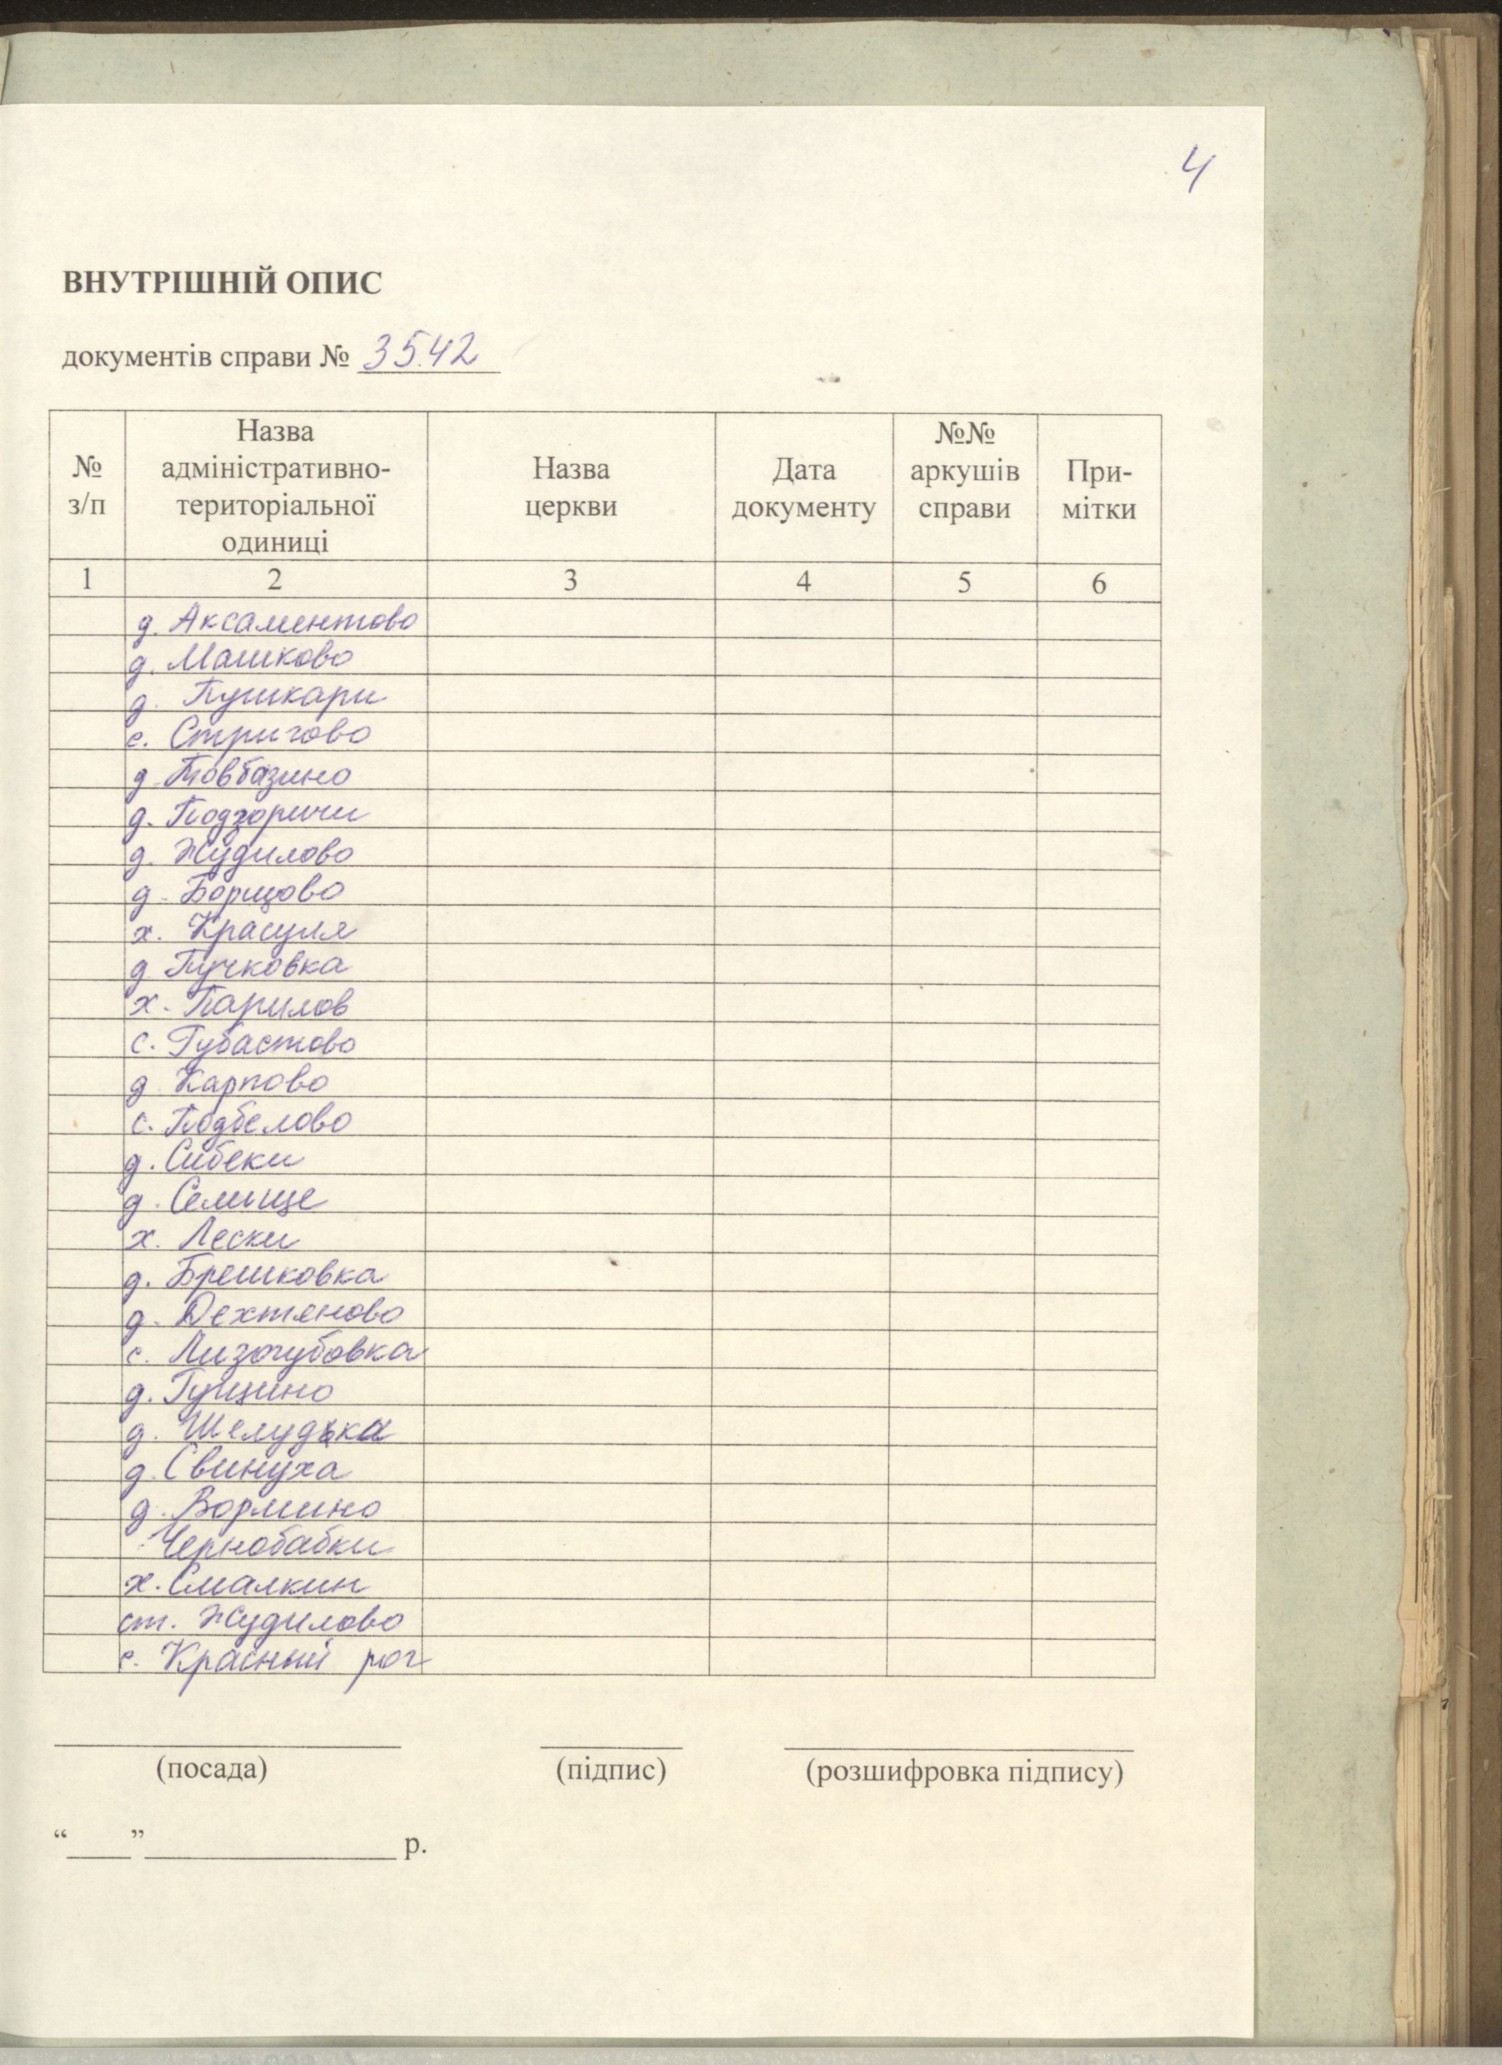 4
ВНУТРІШНІЙ ОПИС
документів справи № 3542
№ з/п
Назва адміністративно-територіальної одиниці
Назва церкви
Дата документу
№№ аркушів справи
При-мітки
1 2 3 4 5 6
д. Аксаментово
д. Машково
д. Пушкари
с. Стригово
д. Товбазино
д. Подзоричи
д. Жудилово
д. Борщово
х. Красуля
д. Пучковка
х. Парилов
с. Губастово
д. Карпово
с. Подбелово
д. Сибеки
д. Селище
х. Лески
д. Брешковка
д. Дехтяново
с. Лизогубовка
д. Гущино
д. Шелудька
д. Свинуха
д. Вормино
Чернобабки
х. Смалкин
ст. Жудилово
с. Красный рог
(посада) (підпис) (розшифровка підпису)
“____”________________ р.